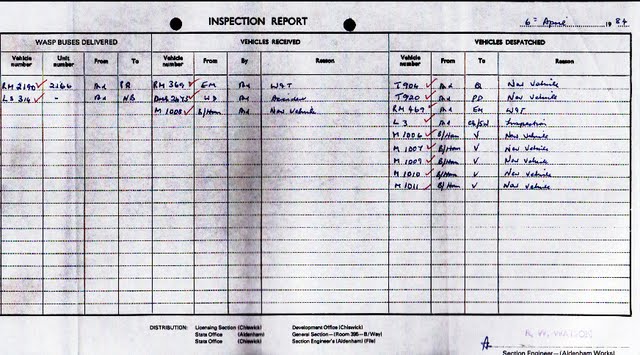 INSPECTION REPORT
6th April 1984
WASP BUSES DELIVERED VEHICLES RECEIVED VEHICLES DESPATCHED
Vehicle number Unit number From To Vehicle number From By Reason Vehicle number From To Reason
RM 2190 2166 Ad BR RM 369 EM Ad W9T T904 Ad Q New Vehicle
LS 314 - Ad NB 2675 Ad T920 Ad PD New Vehicle
M 1008 B/Ham Ad New Vehicle RM 467 Ad EM W9T
L 3 Ad Inspection
M 1006 B/Ham V New Vehicle
M 1007 B/Ham V New Vehicle
M 1009 B/Ham V New Vehicle
M 1010 B/Ham V New Vehicle
M 1011 B/Ham V New Vehicle
DISTRIBUTION: Licensing Section (Chiswick) Development Office (Chiswick)
State Office (Aldenham) General Section-(Room 395-B/Way)
State Office (Chiswick) Section Engineer's (Aldenham) (File)
R. W. WATSON
A
Section Engineer-(Aldenham Works)